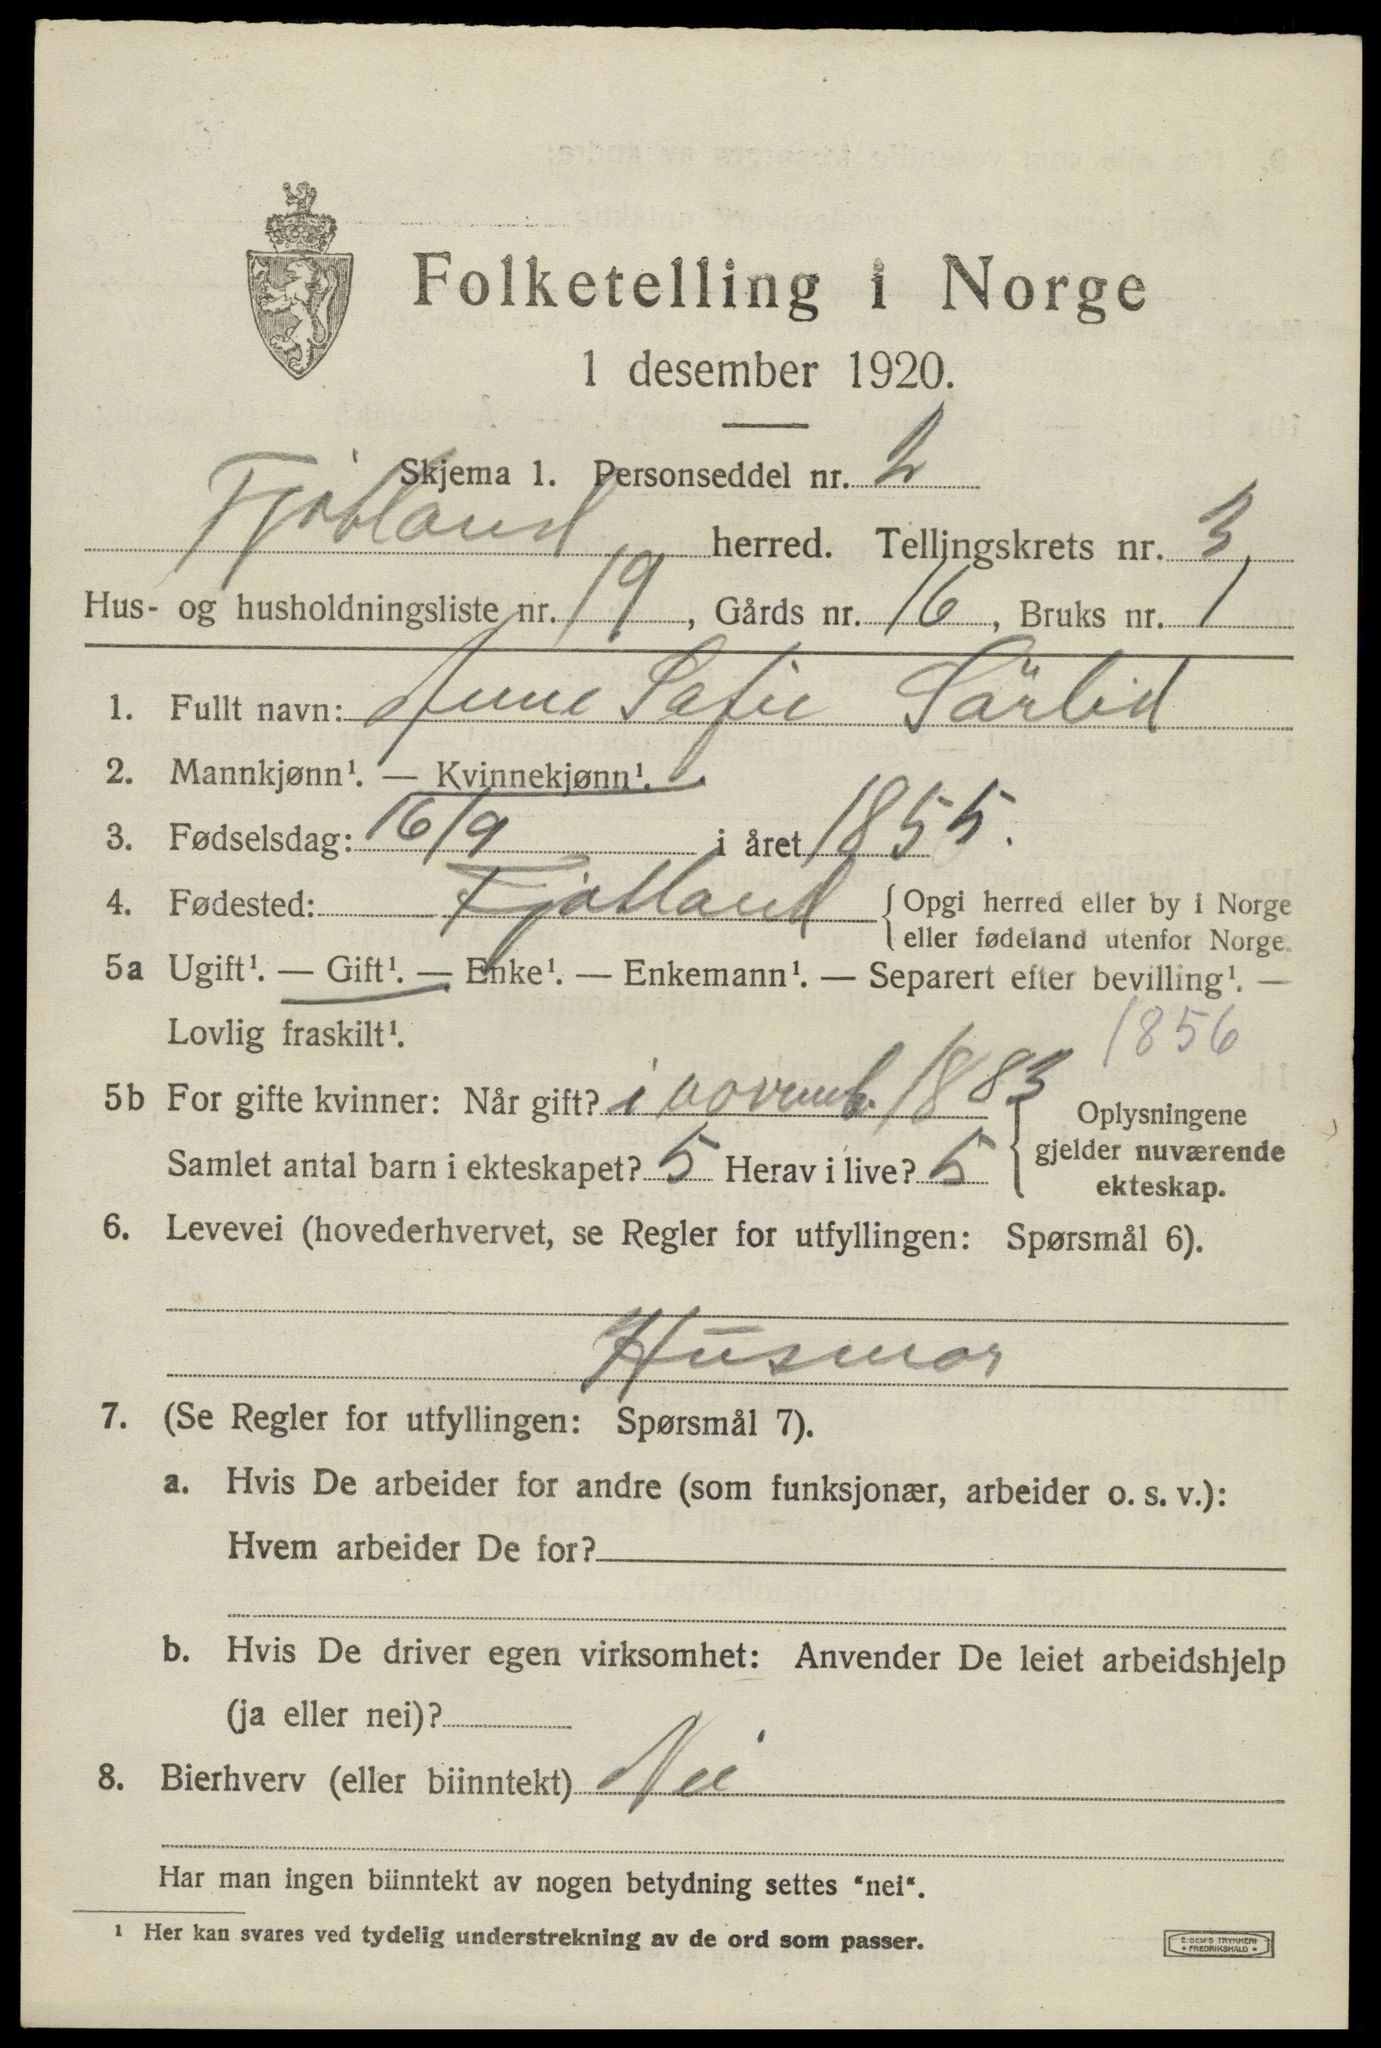 Folketelling i Norge
1 desember 1920.
Skjema 1. Personseddel nr. 2
Fjotland herred. Tellingskrets nr. 3
Hus- og husholdningsliste nr. 19, Gårds nr. 16, Bruks nr. 1
1. Fullt navn: Anne Sofie
2. Mannkjønn¹. — Kvinnekjønn¹.
3. Fødselsdag: 16/9 i året 1855.
4. Fødested: Fjotland { Opgi herred eller by i Norge
eller fødeland utenfor Norge.
5a Ugift¹. — Gift¹. — Enke¹. — Enkemann¹. — Separert efter bevilling¹. —
Lovlig fraskilt¹. 1856
5b For gifte kvinner: Når gift? i novemb. 1883
Samlet antal barn i ekteskapet? 5 Herav i live? 5
{ Oplysningene
gjelder nuværende
ekteskap.
6. Levevei (hovederhvervet, se Regler for utfyllingen: Spørsmål 6).
Husmor
7. (Se Regler for utfyllingen: Spørsmål 7).
a. Hvis De arbeider for andre (som funksjonær, arbeider o. s. v.):
Hvem arbeider De for?
b. Hvis De driver egen virksomhet: Anvender De leiet arbeidshjelp
(ja eller nei)?
8. Bierhverv (eller biinntekt) Nei
Har man ingen biinntekt av nogen betydning settes "nei".
¹ Her kan svares ved tydelig understrekning av de ord som passer.
TRYKKERI
• FREDRIKSHALD •